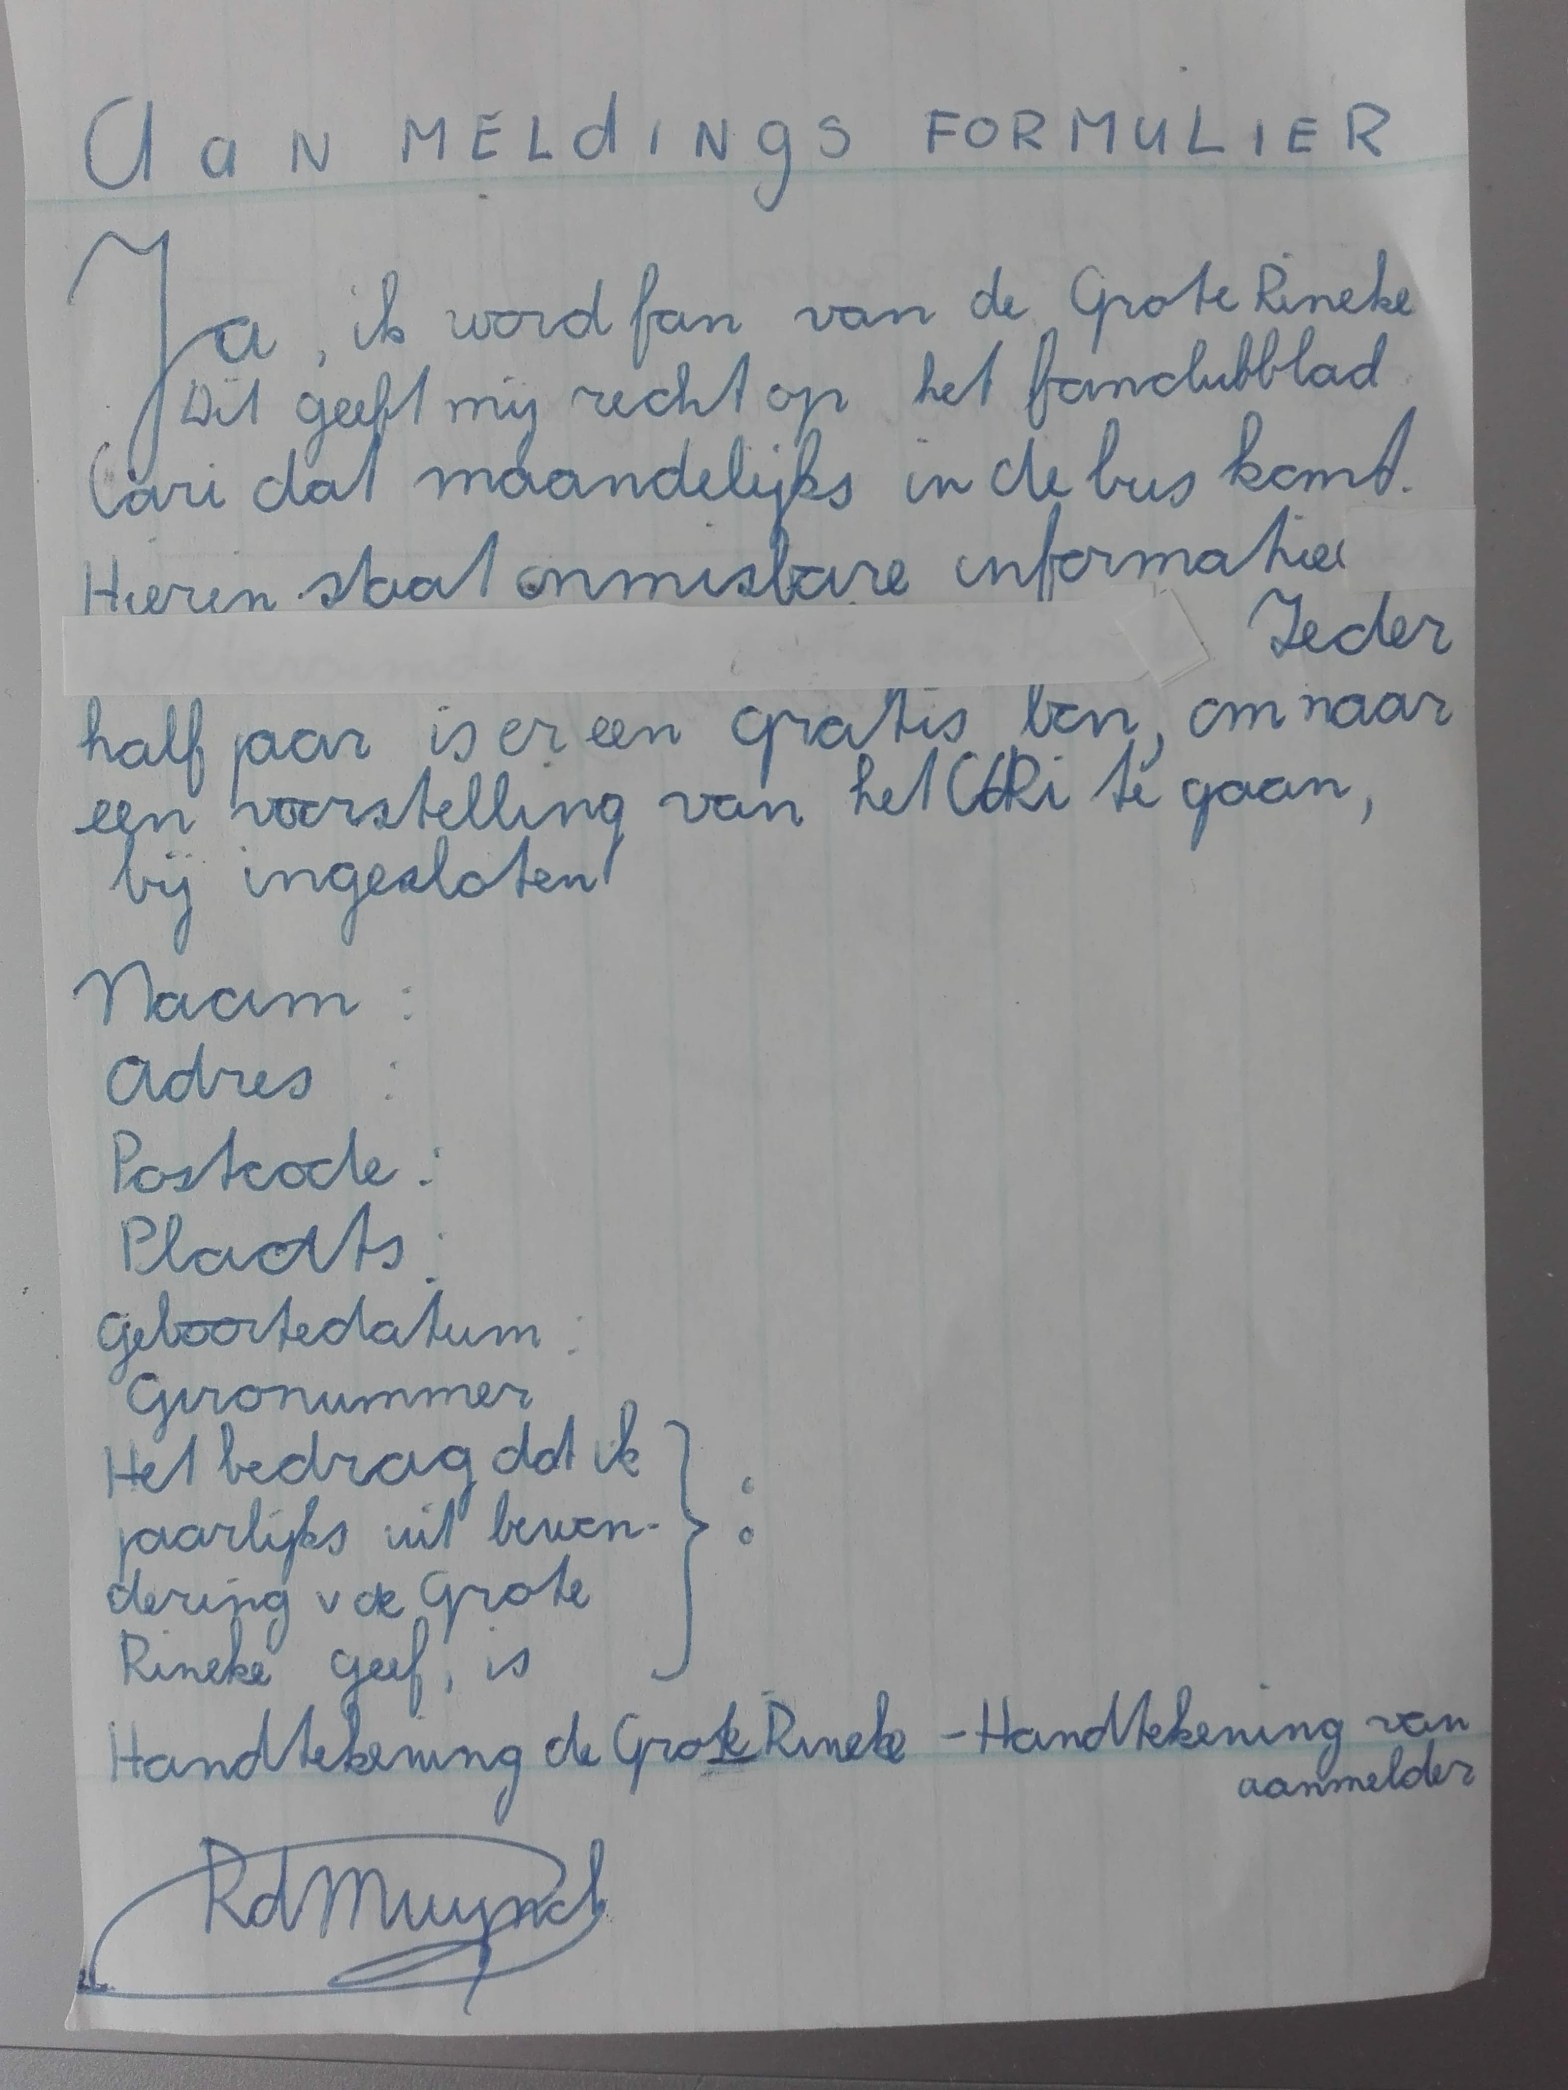 Aan MELdINgS FORMULIER
Ja, ik word fan van de Grote Rineke
Dit geeft mij recht op het fanclubblad
Cari dat maandelijks in de bus komt.
Hierin staat onmisbare informatie
Ieder
half jaar is er een gratis bon, om naar
een voorstelling van het CaRi te gaan,
bij ingesloten
Naam :
Adres :
Postcode :
Plaats :
Geboortedatum :
Gironummer
Het bedrag dat ik
jaarlijks uit bewon-
dering v de Grote
Rineke geef, is
} :
Handtekening de Grote Rineke - Handtekening van
aanmelder
RdMuynck